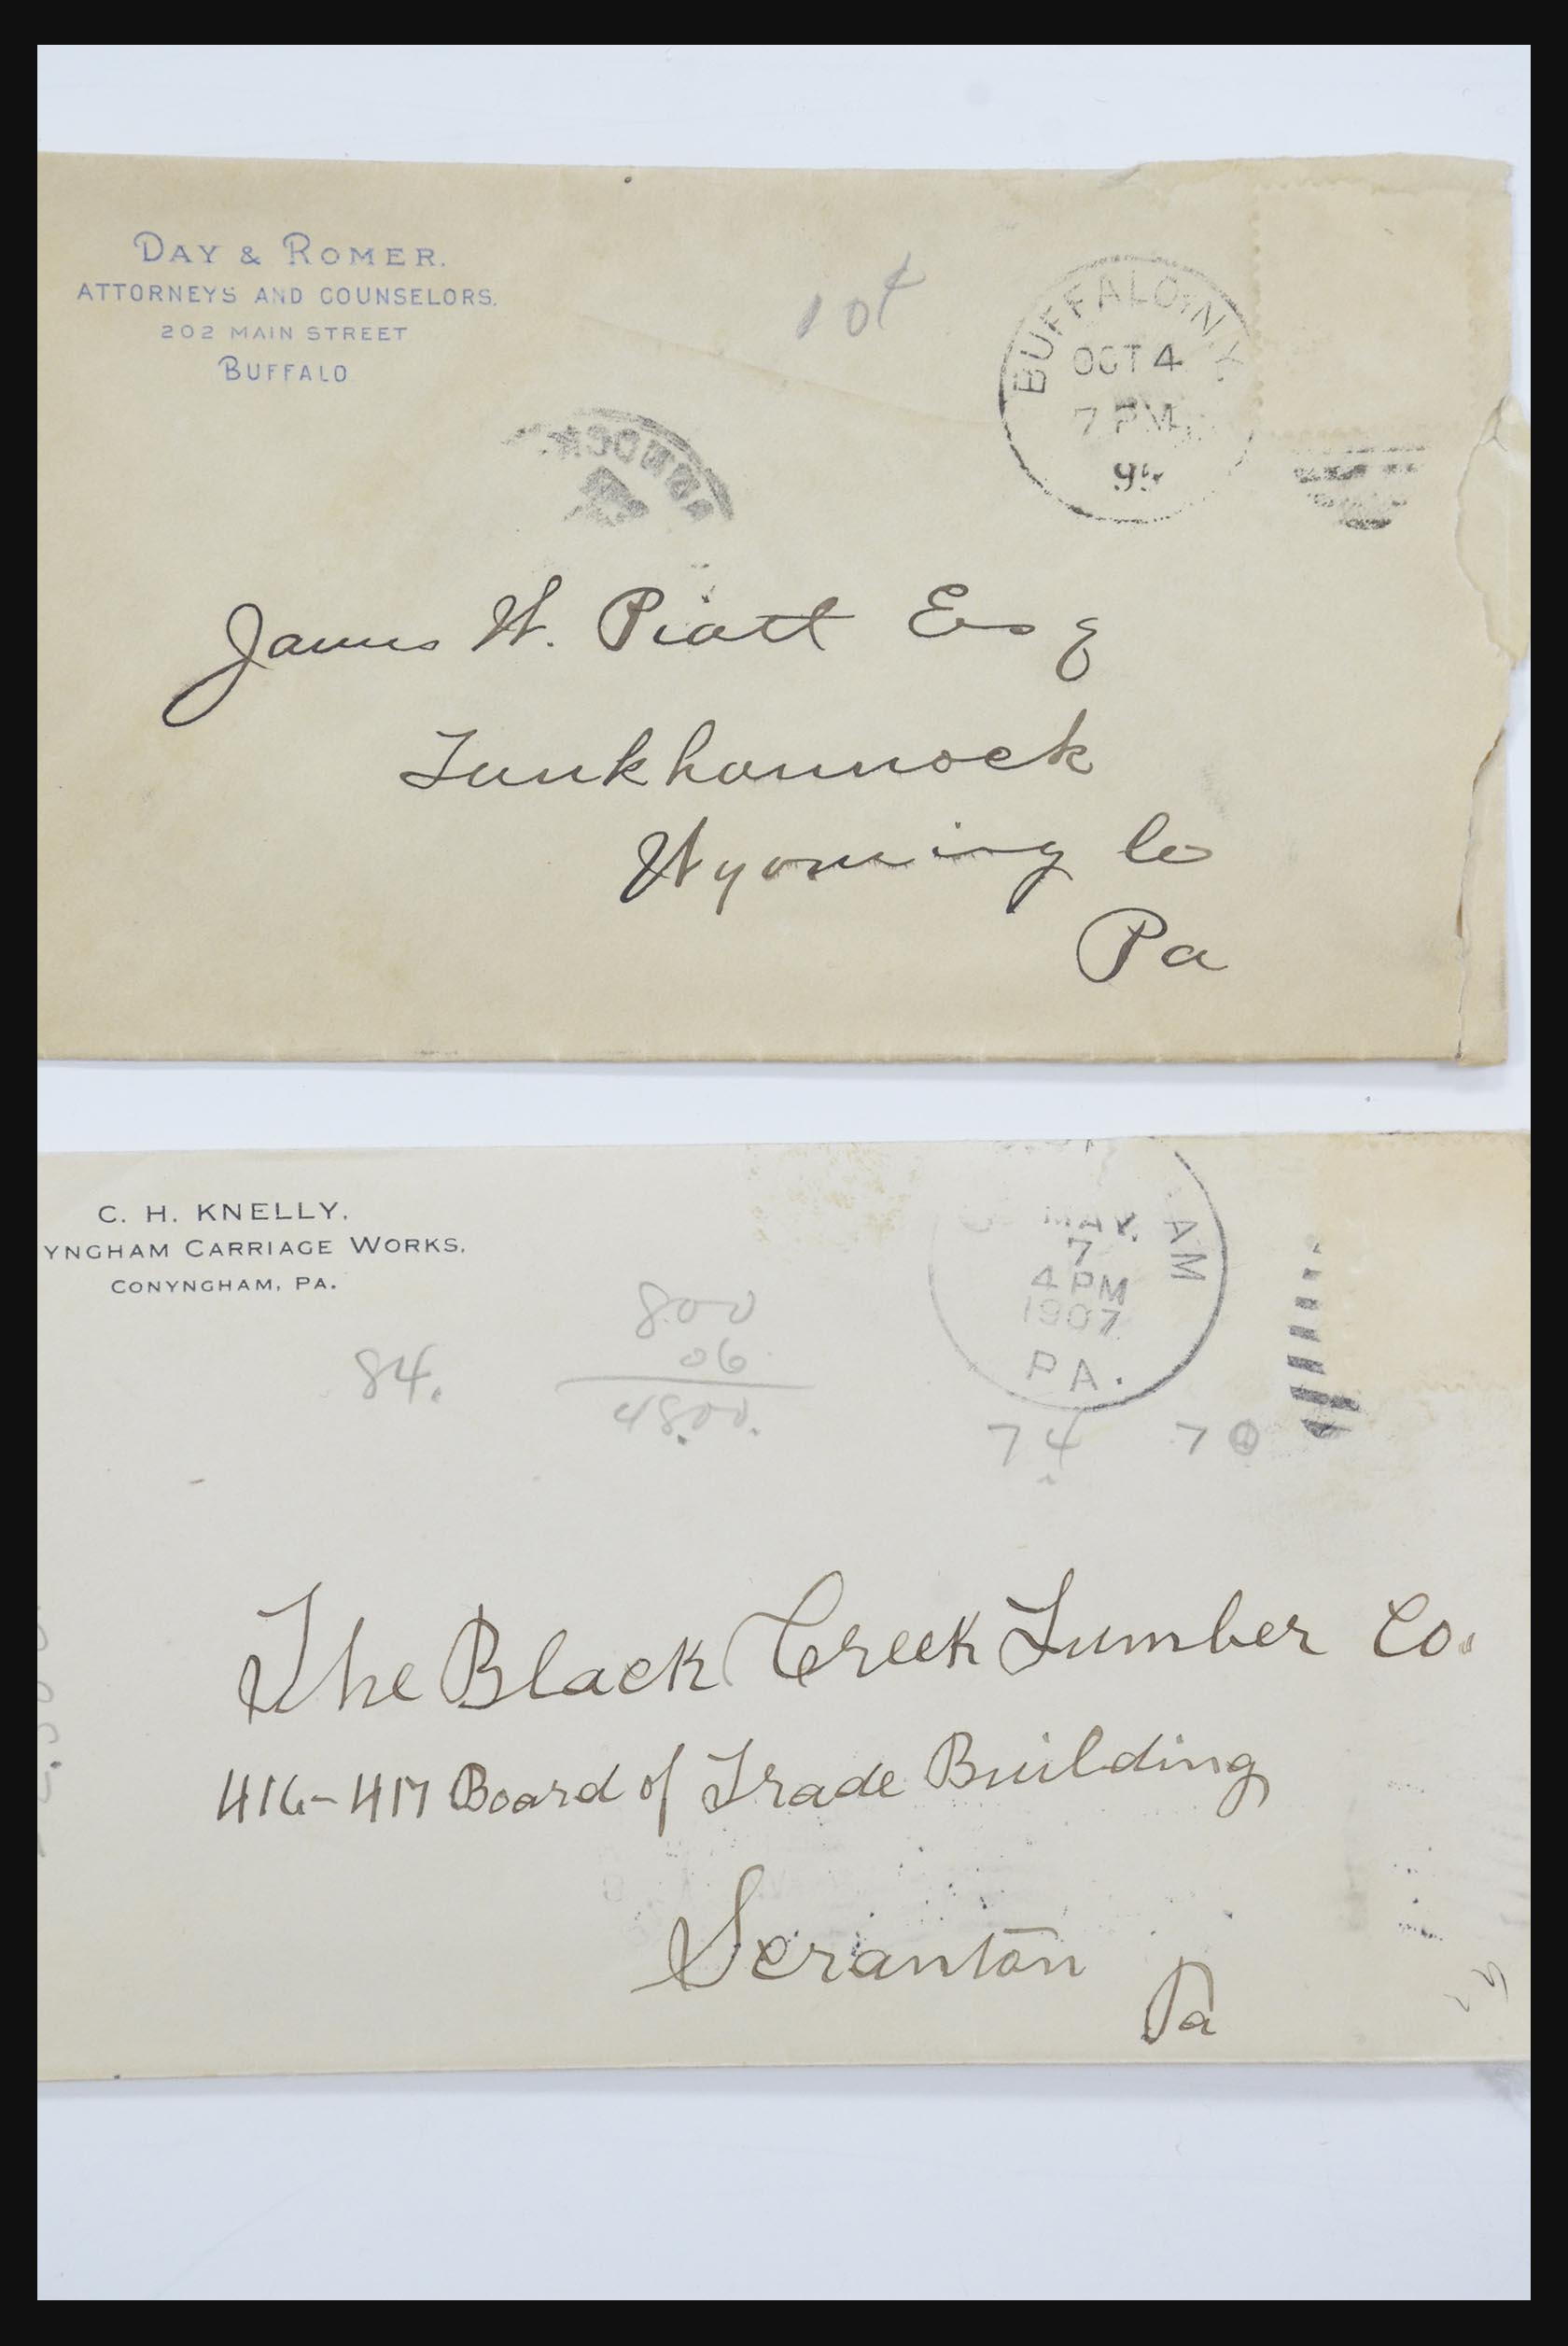 DAY & ROMER.
ATTORNEYS AND COUNSELORS.
202 MAIN STREET
BUFFALO
10¢
BUFFALO, N.Y.
OCT 4
7 PM
James W. Piatt Esq
Tunkhannock
Wyoming Co
Pa
C. H. KNELLY.
YNGHAM CARRIAGE WORKS.
CONYNGHAM, PA.
AM
MAY.
7
4 PM
1907
PA.
84.
800
06
4800.
74 70
The Black Creek Lumber Co.
416-417 Board of Trade Building
Scranton
Pa